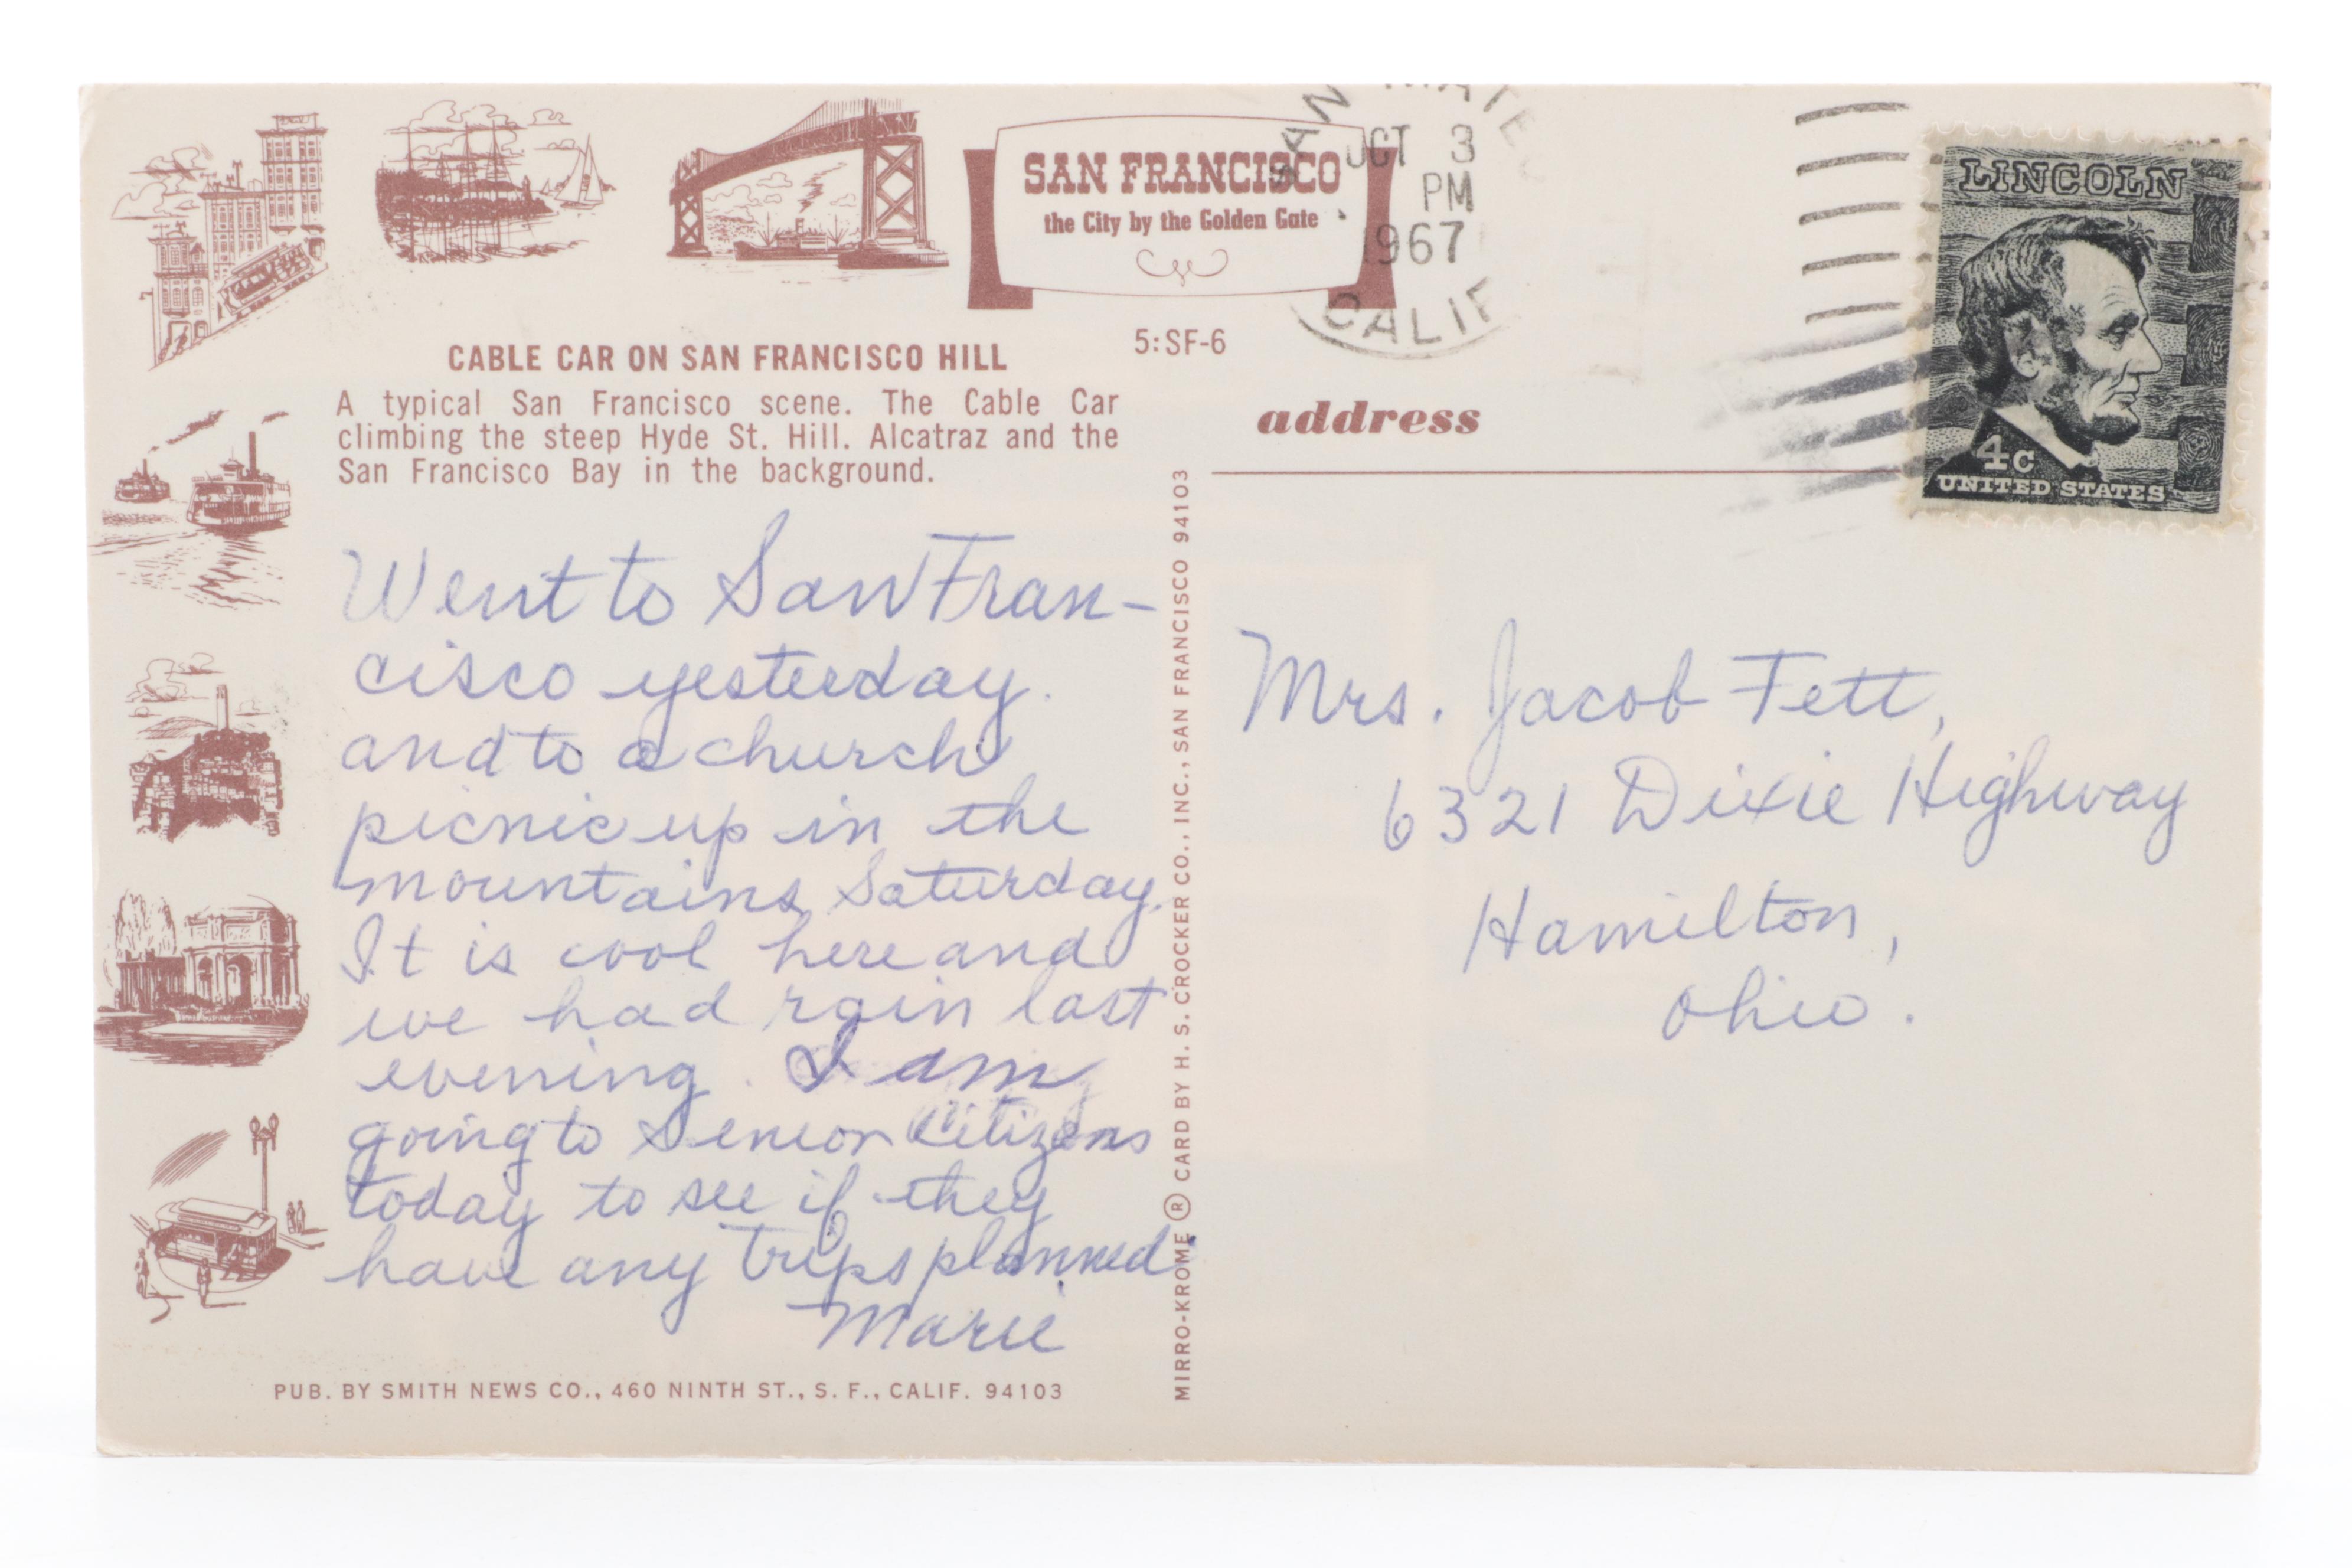 SAN FRANCISCO
the City by the Golden Gate
SAN MATEO
OCT 3
PM
1967
CALIF
LINCOLN
4c
UNITED STATES
5:SF-6
CABLE CAR ON SAN FRANCISCO HILL
A typical San Francisco scene. The Cable Car
climbing the steep Hyde St. Hill. Alcatraz and the
San Francisco Bay in the background.
address
Went to San Fran-
cisco yesterday.
and to a church
picnic up in the
mountains Saturday.
It is cool here and
we had rain last
evening. I am
going to Senior Citizens
today to see if they
have any trips planned.
Marie
PUB. BY SMITH NEWS CO., 460 NINTH ST., S. F., CALIF. 94103
MIRRO-KROME ® CARD BY H. S. CROCKER CO., INC., SAN FRANCISCO 94103
Mrs. Jacob Fett,
6321 Dixie Highway
Hamilton,
Ohio.